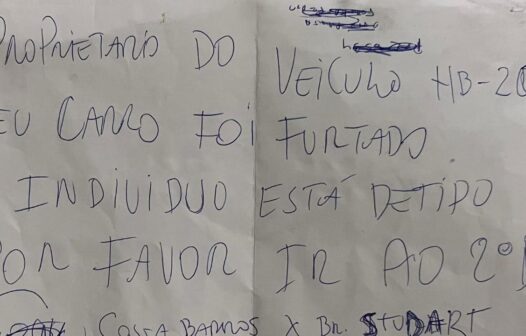 PROPRIETARIO DO VEICULO HB-20
EU CARRO FOI FURTADO
INDIVIDUO ESTÁ DETIDO
POR FAVOR IR AO 2º D
COSTA BARROS X BR. STUDART